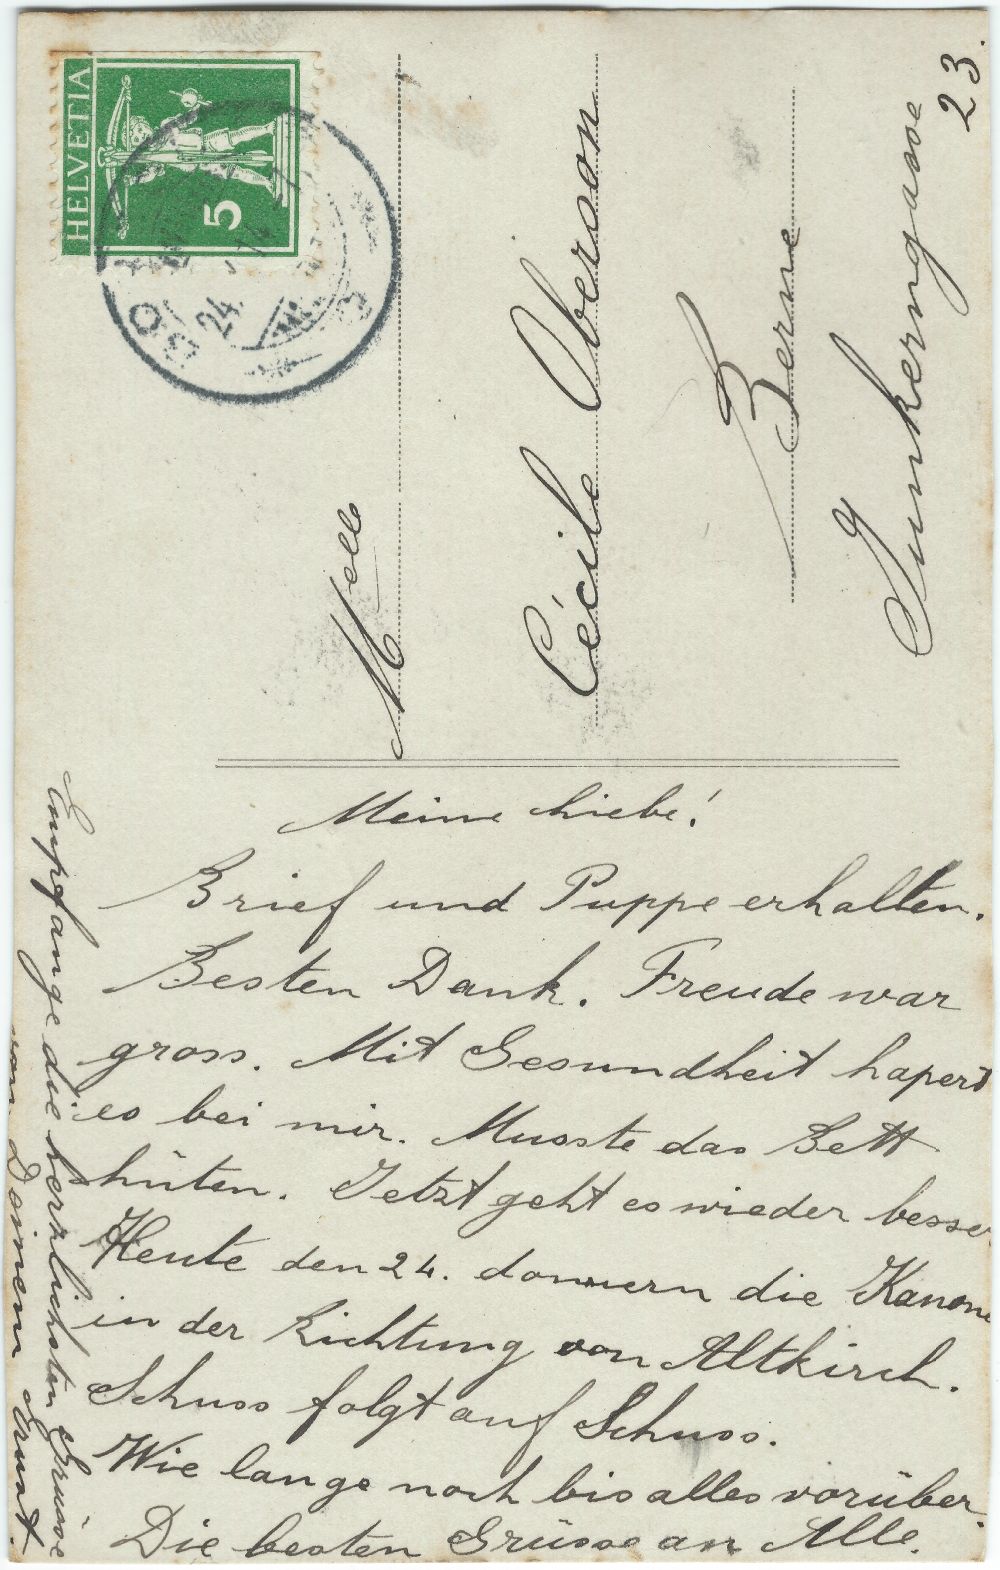 HELVETIA
5
24.
Melle
Cécile Oberson
Berne
Junkerngasse
23.
Meine Liebe!
Brief und Puppe erhalten.
Besten Dank. Freude war
gross. Mit Gesundheit hapert
es bei mir. Musste das Bett
hüten. Jetzt geht es wieder besser
Heute den 24. donnern die Kanonen
in der Richtung von Altkirch.
Schuss folgt auf Schuss.
Wie lange noch bis alles vorüber.
Die besten Grüsse an Alle.
Empfange die herzlichsten Grüsse
von Deinem Ernst.